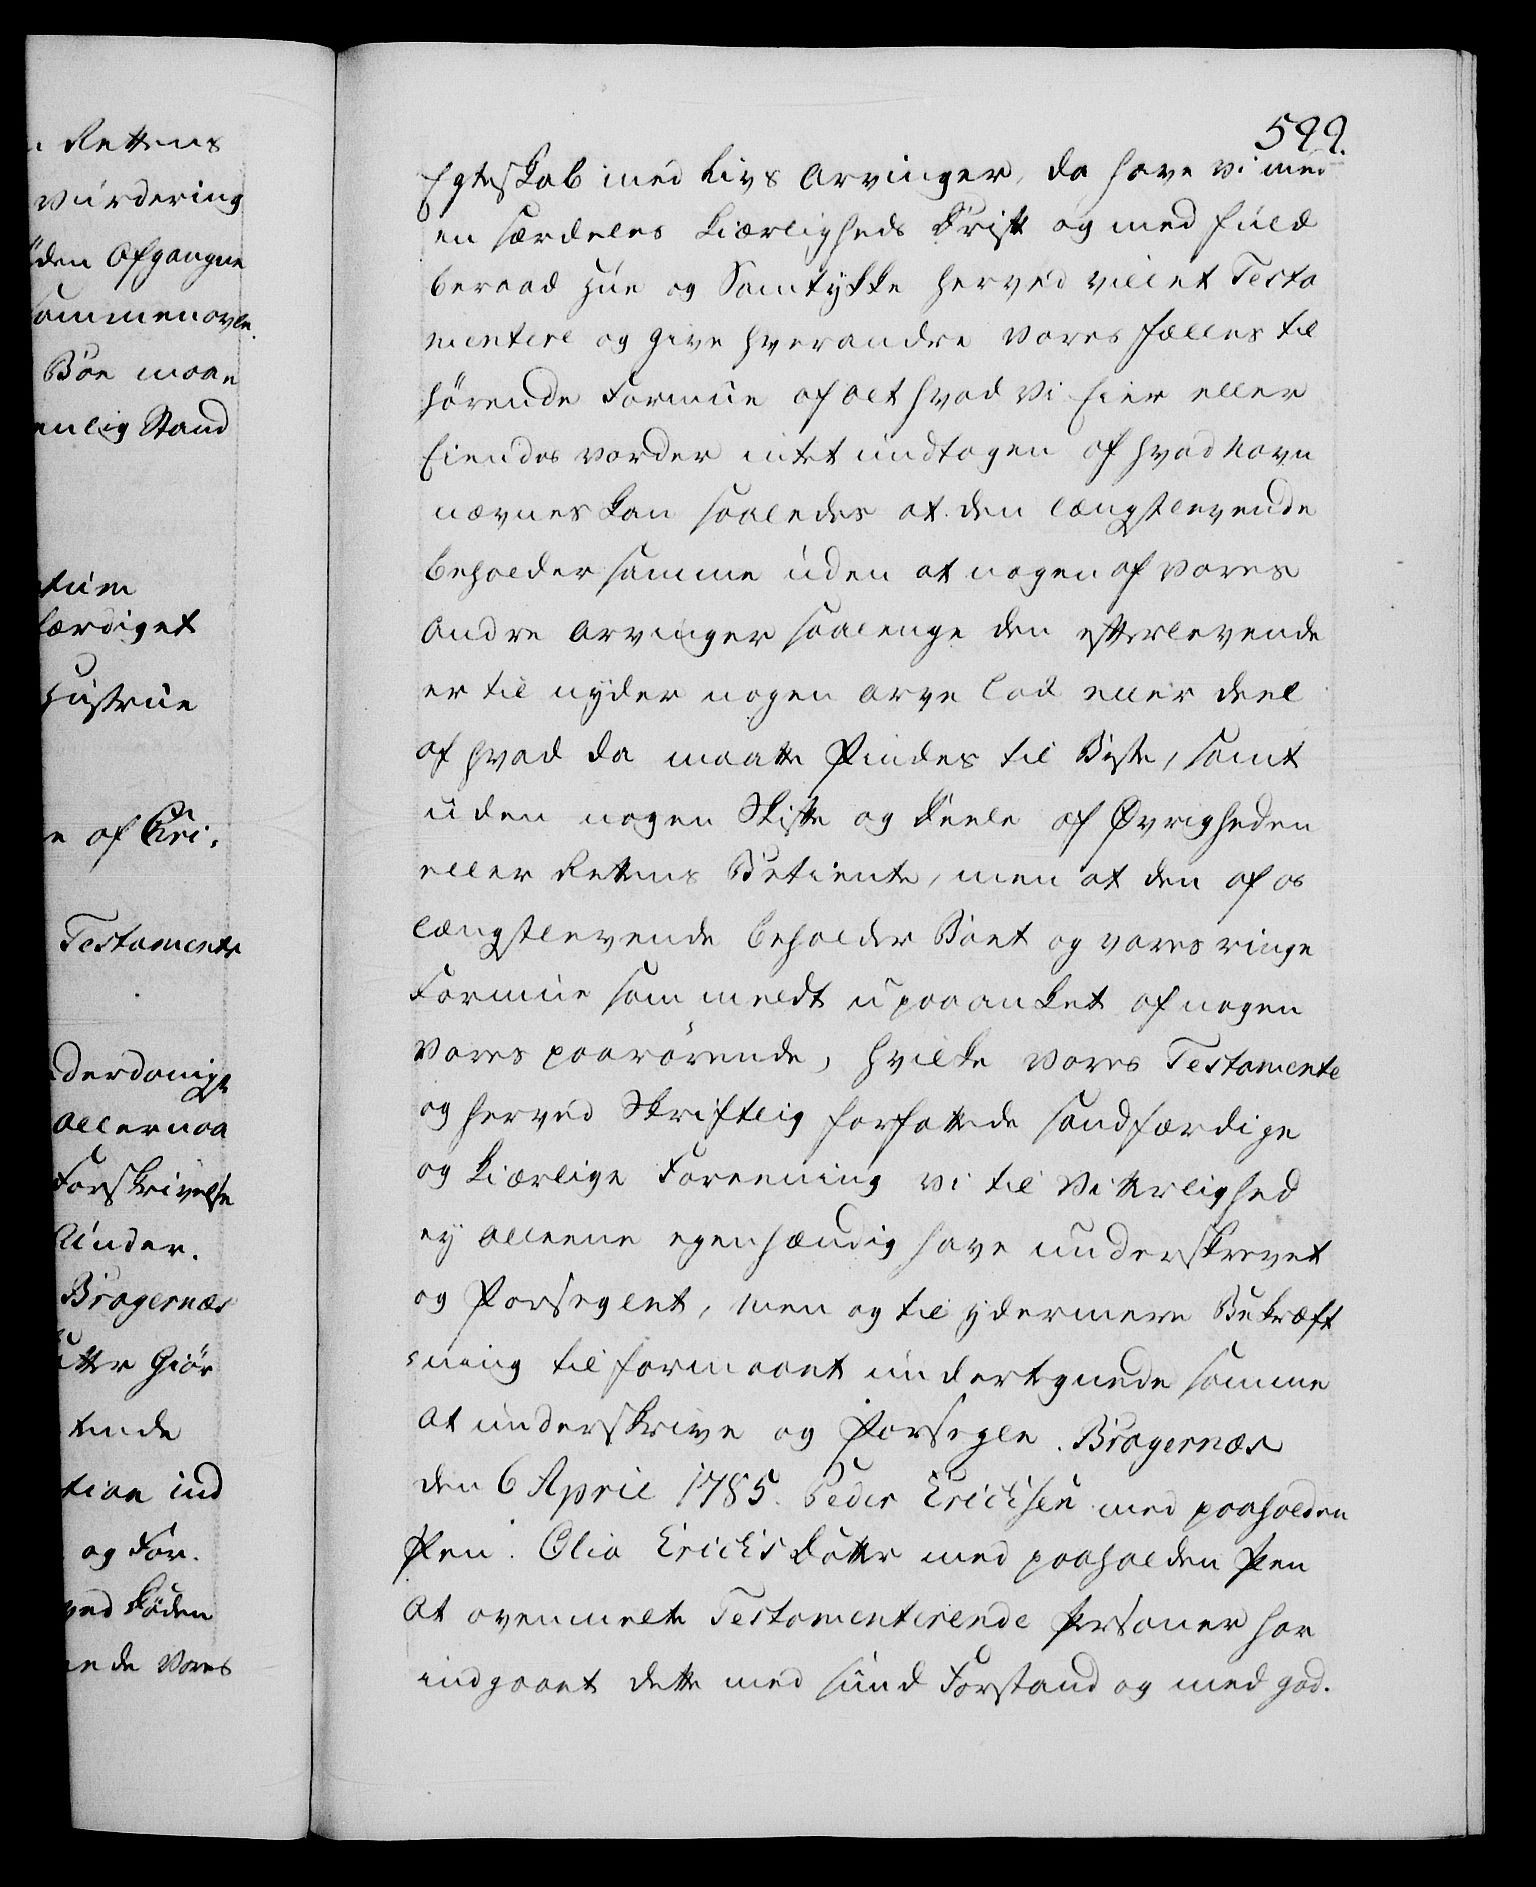 599.
Egteskab med Livs Arvinger, da have vi med
en særdeles Kiærligheds Drift og med fuld
beraad Hue og Samtykke herved villet Testa
mentere og give hverandre vores fælles til
hørende Formue af alt hvad vi Eier eller
Eiendes vorder intet undtagen af hvad Navn
nævnes kan saaledes at den længstlevende
beholder samme uden at nogen af vores
Andre Arvinger saalenge den efterlevende
er til nyder nogen Arve Lod eller deel
af hvad da maatte Findes til Beste, samt
uden nogen Skifte og Deele af Øvrigheden
eller Rettens Betiente, men at den af os
længstlevende beholder Boet og vores ringe
Formue som meldt upaaanket af nogen
Vores paarørende, hvilke vores Testamente
og herved Skriftlig forfattede sandfærdige
og kiærlige Foreening vi til Vitterlighed
ey alleene egenhændig have underskrevet
og Forseglet, men og til ydermere Bekræft
ning til formaaet undertegnede samme
at underskrive og Forsegle. Bragernæs
den 6 April 1785. Peder Erichsen med paaholden
Pen. Olia Erichsdatter med paaholden Pen
At ovenmelte Testamenterende Personer har
indgaaet dette med sund Forstand og med god.
Rettens
Vurdering
den Afgangne
sammenavle.
Boe maae
enlig Stand
tum
færdiget
Hustrue
e af Chri.
Testamente
derdanigst
Allernaa
Forskrivelse
Under.
Bragernæs
atter Giør
tende
tion ind
og For.
ved Døden
ende Vores